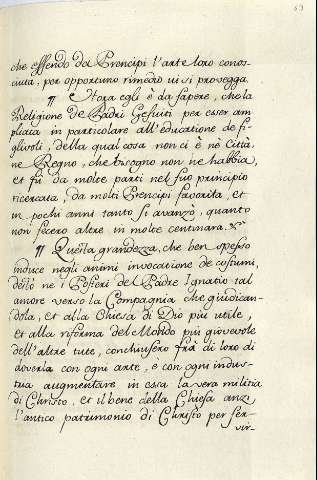 63
che essendo da Prencipi l'arte loro conos-
ciuta, por opportuno rimedio vi si provegga.
¶ Hora egli è da sapere, che la
Religione de Padri Gesuiti per esser am
pliata in particolare all'educatione de fi-
glivoli, della qual cosa non ci è ne Città,
ne Regno, che bisogno non ne habbia,
et fù da molte parti nel suo principio
ricercata, da molti Prencipi favorita, et
in pochi anni tanto si avanzò, quanto
non fecero altre in molte centinara.
¶ Questa grandezza, che ben spesso
induce negli animi invocatione de costumi,
destò ne i Posteri del Padre Ignatio tal
amore verso la Compagnia che giudican-
dola, et alla Chiesa di Dio più utile,
et alla riforma del Mondo più giovevole
dell'altre tute, conchiusero frà di loro di
doverla con ogni arte, e con ogni indus-
tria augmentare in essa la vera militia
di Christo, et il bene della Chiesa anzi
l'antico patrimonio di Christo per ser-
vir-